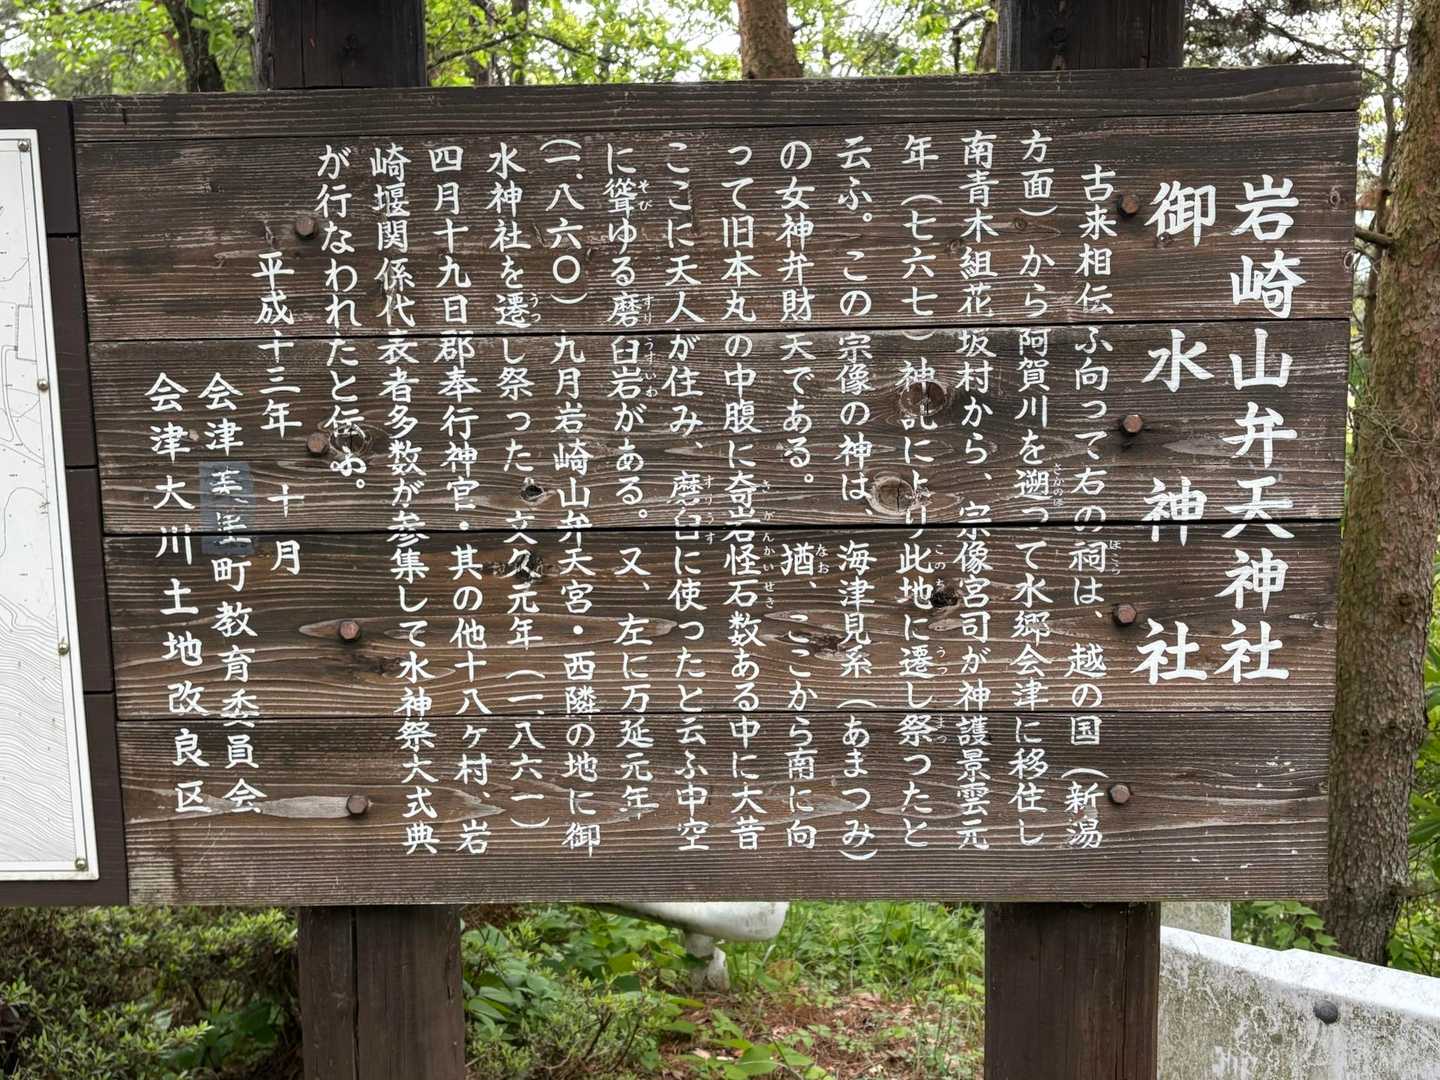 岩崎山弁天神社
御水神社
古来相伝ふ向って右の祠は、越の国（新潟
方面）から阿賀川を遡って水郷会津に移住し
南青木組花坂村から、宗像宮司が神護景雲元
年（七六七）神託により此地に遷し祭ったと
云ふ。この宗像の神は、海津見系（あまつみ）
の女神弁財天である。猶、ここから南に向
って旧本丸の中腹に奇岩怪石数ある中に大昔
ここに天人が住み、磨臼に使ったと云ふ中空
に聳ゆる磨臼岩がある。又、左に万延元年
（一、八六〇）九月岩崎山弁天宮・西隣の地に御
水神社を遷し祭った 文久元年（一、八六一）
四月十九日郡奉行神官・其の他十八ヶ村、岩
崎堰関係代表者多数が参集して水神祭大式典
が行なわれたと伝ふ。
平成十三年 十月
会津美里町教育委員会
会津大川土地改良区